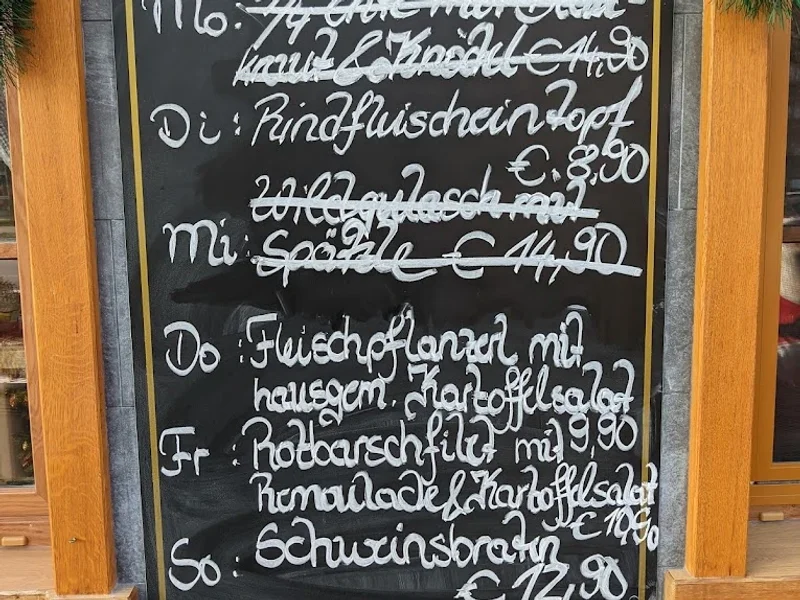 Mo: 1/4 Ente mit Blau-
kraut & Knödel €14,90
Di: Rindfleischeintopf
€ 8,90
Wildgulasch mit
Mi: Spätzle € 14,90
Do: Fleischpflanzerl mit
hausgem. Kartoffelsalat
9,90
Fr: Rotbarschfilet mit
Remoulade & Kartoffelsalat
€ 10,90
So: Schweinsbraten
€ 12,90